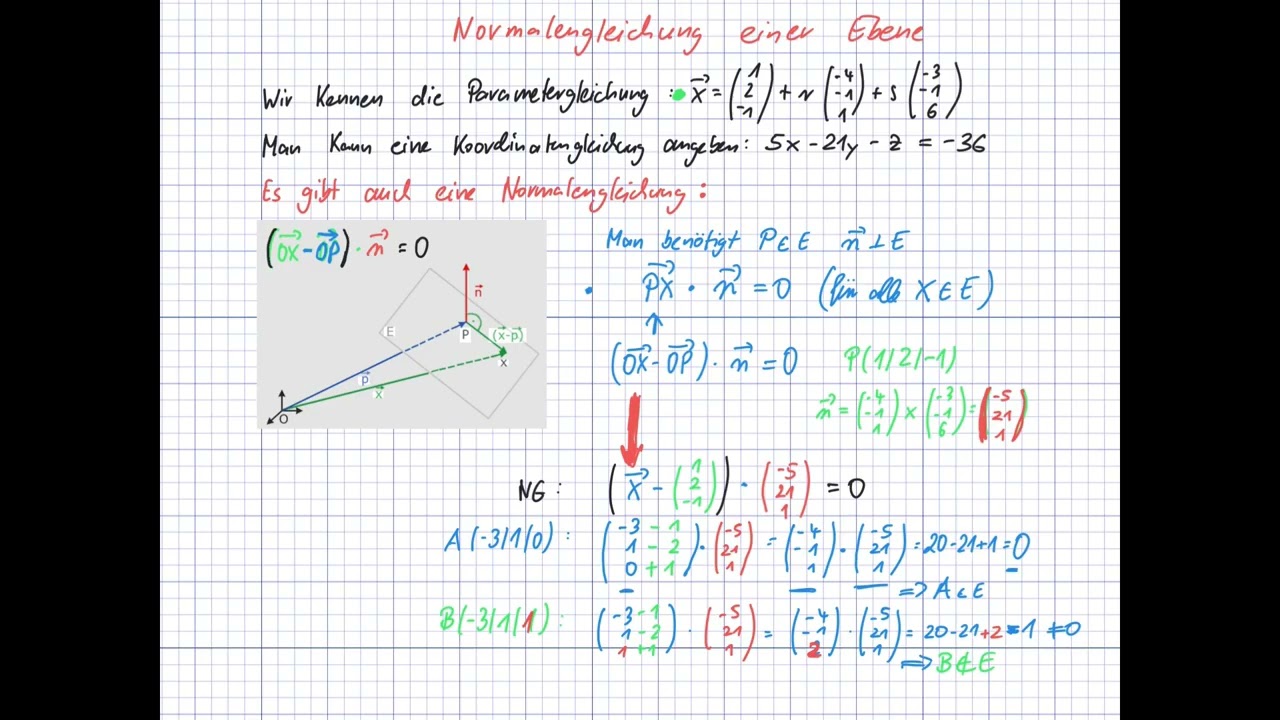 Normalengleichung einer Ebene
Wir kennen die Parametergleichung : x⃗ = (1 2 -1) + r (-4 -1 1) + s (-3 -1 6)
Man kann eine Koordinatengleichung angeben: 5x - 21y - z = -36
Es gibt auch eine Normalengleichung:
(OX⃗ - OP⃗) · n⃗ = 0
n⃗
E
P
(x⃗-p⃗)
x
p⃗
x⃗
O
Man benötigt P∈E n⃗ ⊥ E
· PX⃗ · n⃗ = 0 (für alle X∈E)
↑
(OX⃗ - OP⃗) · n⃗ = 0
P(1/2/-1)
n⃗ = (-4 -1 1) × (-3 -1 6) = (-5 21 1)
NG : (x⃗ - (1 2 -1)) · (-5 21 1) = 0
A(-3|1|0) : (-3-1 1-2 0+1) · (-5 21 1) = (-4 -1 1) · (-5 21 1) = 20-21+1=0
=> A∈E
B(-3|1|1) : (-3-1 1-2 1+1) · (-5 21 1) = (-4 -1 2) · (-5 21 1) = 20-21+2=1 ≠0
=> B∉E